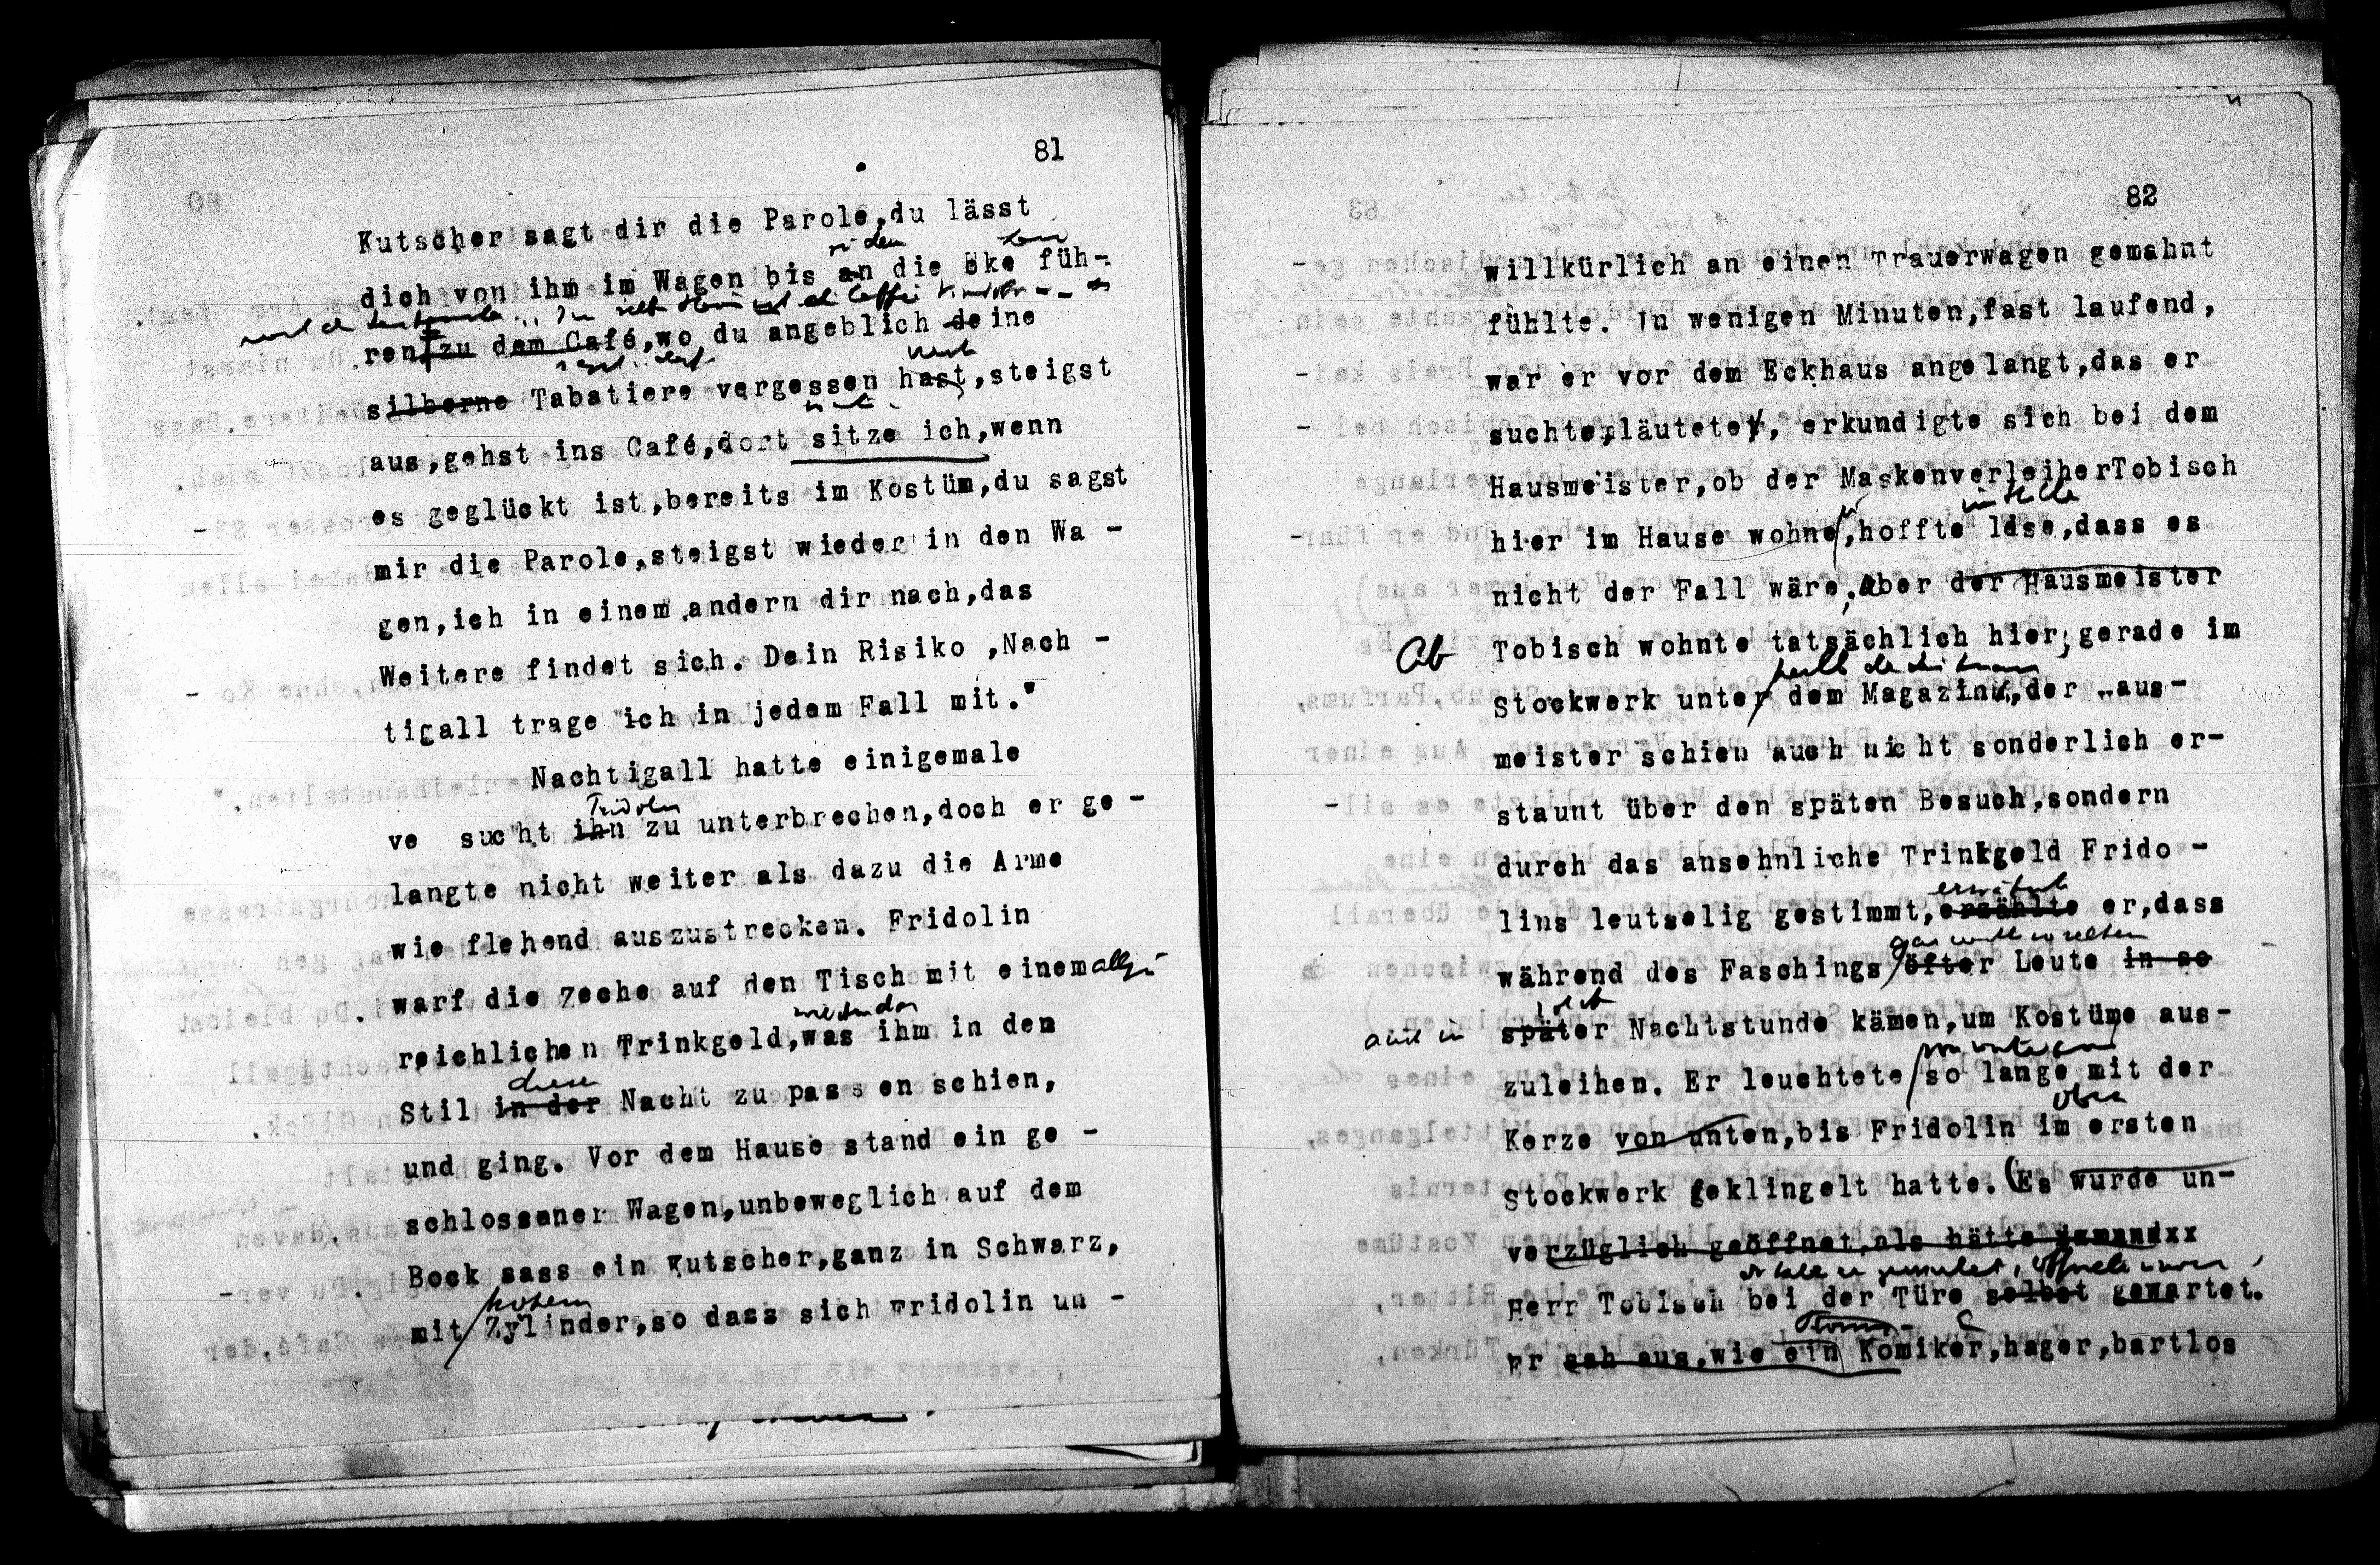 81
Kutscher sagt dir die Parole,du lässt
dich von ihm im Wagen bis an die Eke füh-
ren zu dem Café,wo du angeblich deine
silberne Tabatiere vergessen hast,steigst
aus,gehst ins Café,dort sitze ich,wenn
es geglückt ist,bereits im Kostüm,du sagst
mir die Parole,steigst wieder in den Wa -
gen,ich in einem andern dir nach,das
Weitere findet sich. Dein Risiko ,Nach -
tigall trage ich in jedem Fall mit."
Nachtigall hatte einigemale
Fridolin
ve sucht ihn zu unterbrechen,doch er ge -
langte nicht weiter als dazu die Arme
wie flehend auszustrecken. Fridolin
warf die Zeche auf den Tisch mit einem allzu
reichlichen Trinkgeld,was ihm in den
diese
Stil in der Nacht zu passen schien,
und ging. Vor dem Hause stand ein ge -
schlossener Wagen,unbeweglich auf dem
Bock sass ein Kutscher,ganz in Schwarz,
hohem
mit Zylinder,so dass sich Fridolin un -
82
willkürlich an einen Trauerwagen gemahnt
fühlte. In wenigen Minuten,fast laufend,
war er vor dem Eckhaus angelangt,das er
suchte,läutete, erkundigte sich bei dem
Hausmeister,ob der MaskenverleiherTobisch
im Stille
hier im Hause wohne,hoffte leise,dass es
nicht der Fall wäre. Aber der Hausmeister
Ab Tobisch wohnte tatsächlich hier, gerade im
Stockwerk unter dem Magazin,der aus-
meister schien auch nicht sonderlich er-
staunt über den späten Besuch,sondern
durch das ansehnliche Trinkgeld Frido -
erwähnte
lins leutselig gestimmt,erzählte er,dass
gar nicht so selten
während des Faschings öfter Leute in so
solch
später Nachtstunde kämen,um Kostüme aus-
von unten
zuleihen. Er leuchtete so lange mit der
oben
Kerze von unten,bis Fridolin im ersten
Stockwerk geklingelt hatte. (Es wurde un-
verzüglich geöffnet,als hätte
Herr Tobisch bei der Türe selbst gewartet.
Er sah aus,wie ein Komiker,hager,bartlos